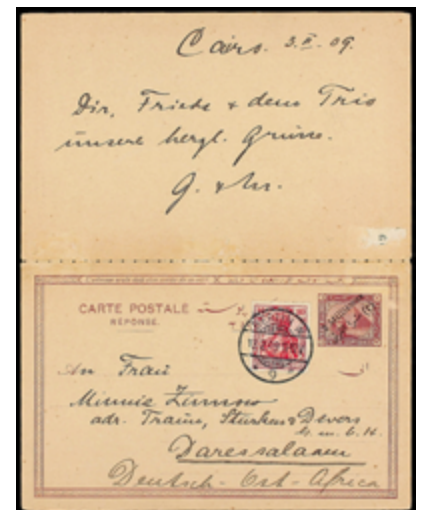 Cairo. 3.II.09.
Dir, Frieda & dem Trio
unsere herzl. Grüsse.
G. & M.
CARTE POSTALE
RÉPONSE.
An Frau
Minnie Zimnow
adr. Traun, Stürken & Devers
G. m. b. H.
Daressalaam
Deutsch-Ost-Africa